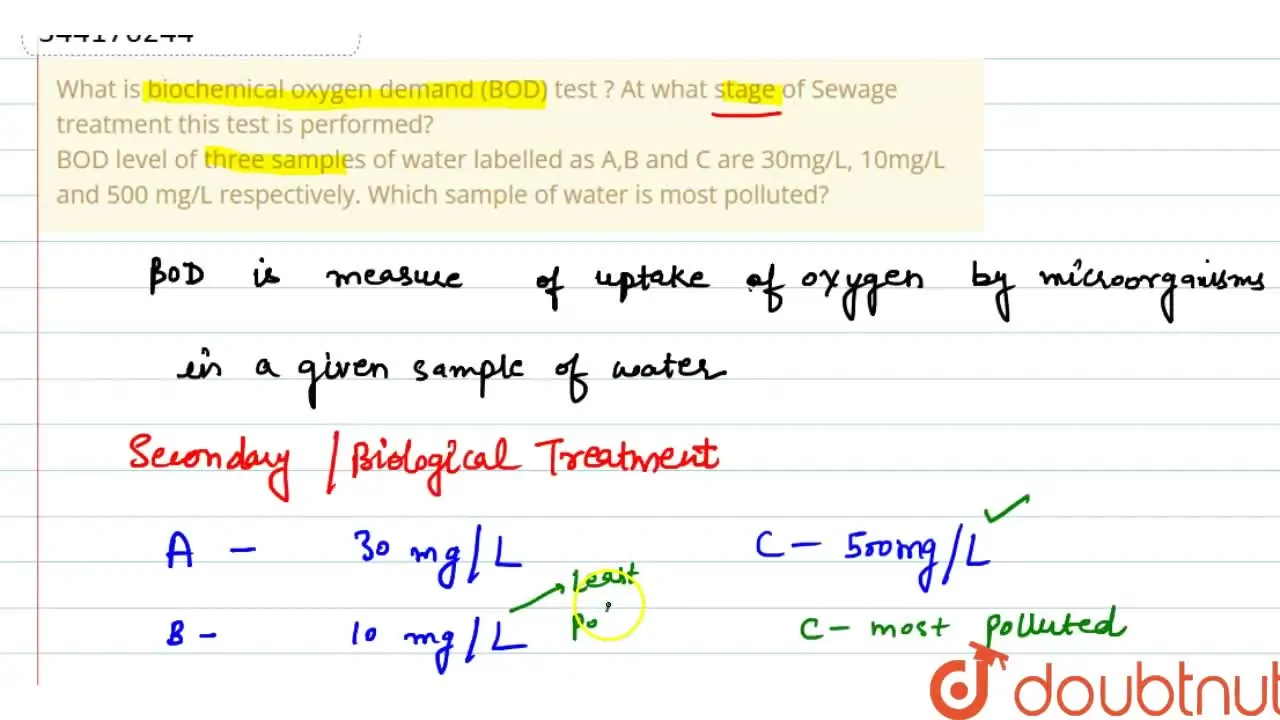 344176244
What is biochemical oxygen demand (BOD) test ? At what stage of Sewage
treatment this test is performed?
BOD level of three samples of water labelled as A,B and C are 30mg/L, 10mg/L
and 500 mg/L respectively. Which sample of water is most polluted?
BOD is measure of uptake of oxygen by microorganisms
in a given sample of water
Secondary / Biological Treatment
A - 30 mg/L
C - 500mg/L
Least
B - 10 mg/L
Po
C - most polluted
doubtnut